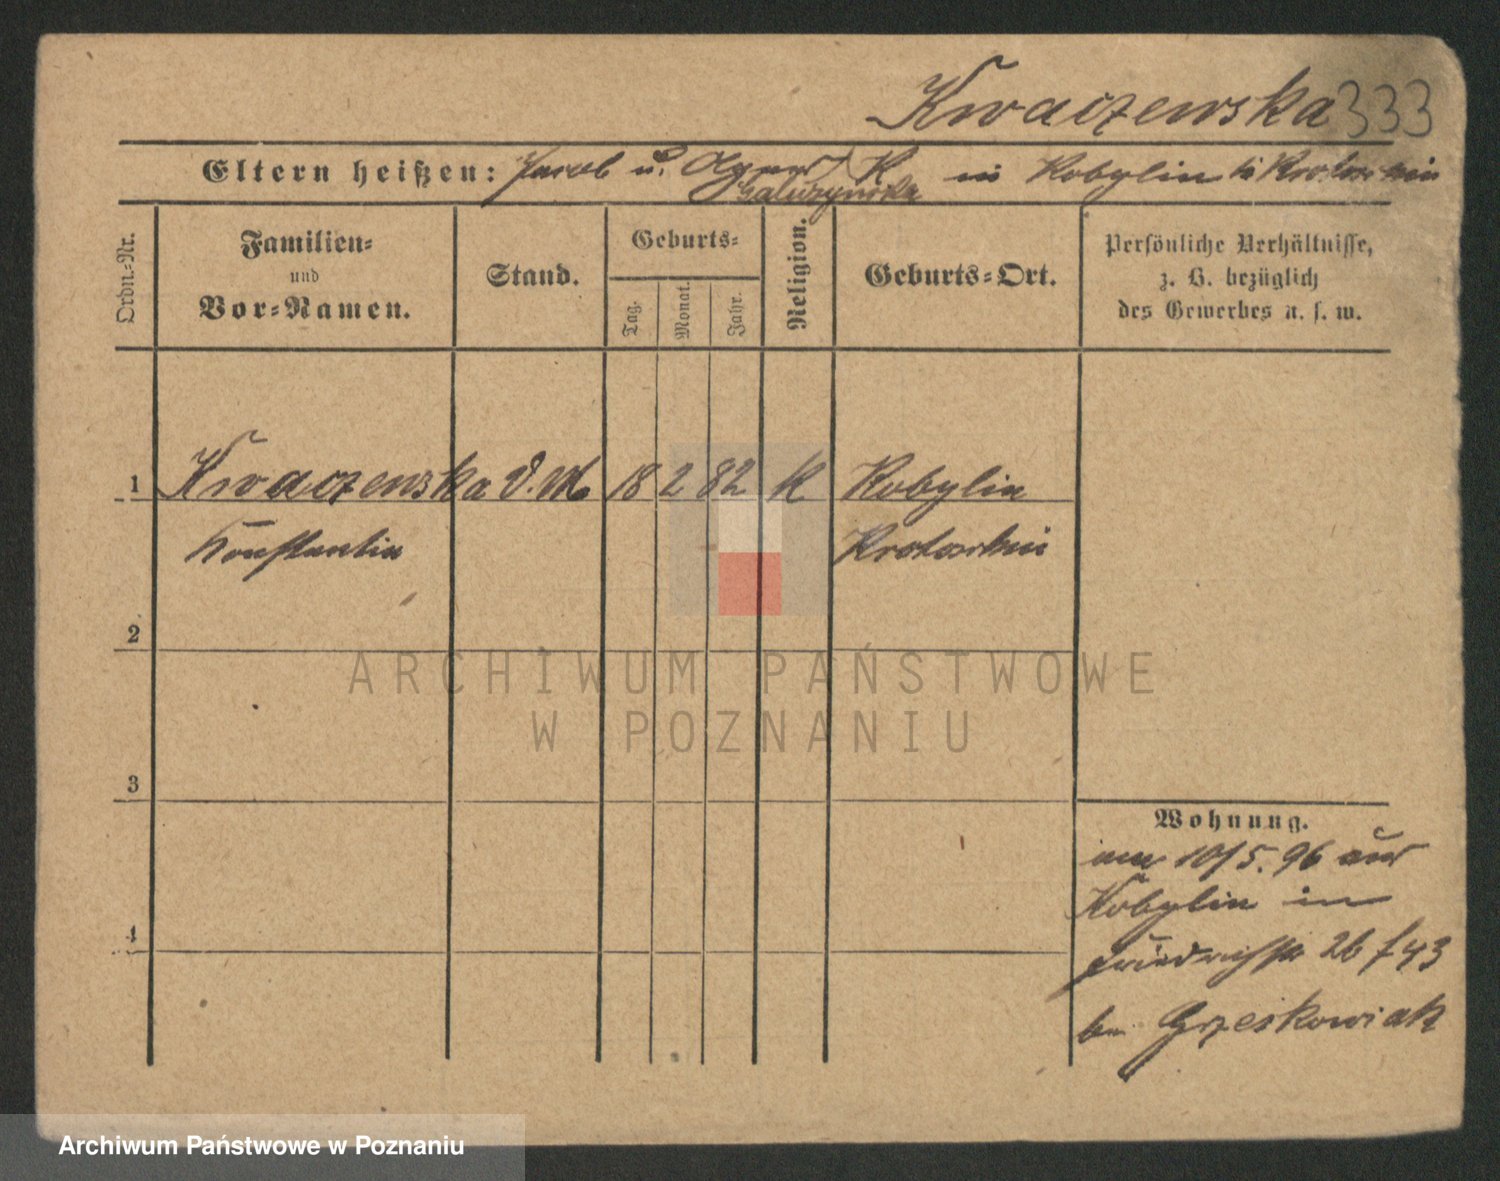 Kwaczewska 333
Eltern heißen: Jacob u. K in Kobylin b Krotoschin
Galuszynska
Ordn.-Nr.
Familien-
und
Vor-Namen.
Stand.
Geburts-
Tag.
Monat.
Jahr.
Religion.
Geburts-Ort.
Persönliche Verhältnisse,
z. B. bezüglich
des Gewerbes u. s. w.
1 Kwaczewska D.M. 18 2 82 K Kobylin
Konstantia Krotoschin
2
3
4
Wohnung.
am 10/5. 96 aus
Kobylin in
Friedrichstr 26 / 43
bei Grzeskowiak
ARCHIWUM PAŃSTWOWE
W POZNANIU
Archiwum Państwowe w Poznaniu